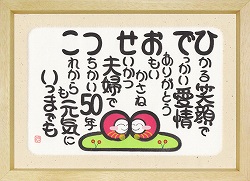 ひかる笑顔で
でっかい愛情
ありがとう
おもい
かさね
せいかつ
夫婦で
つちかい50年
これからも元気に
いつまでも